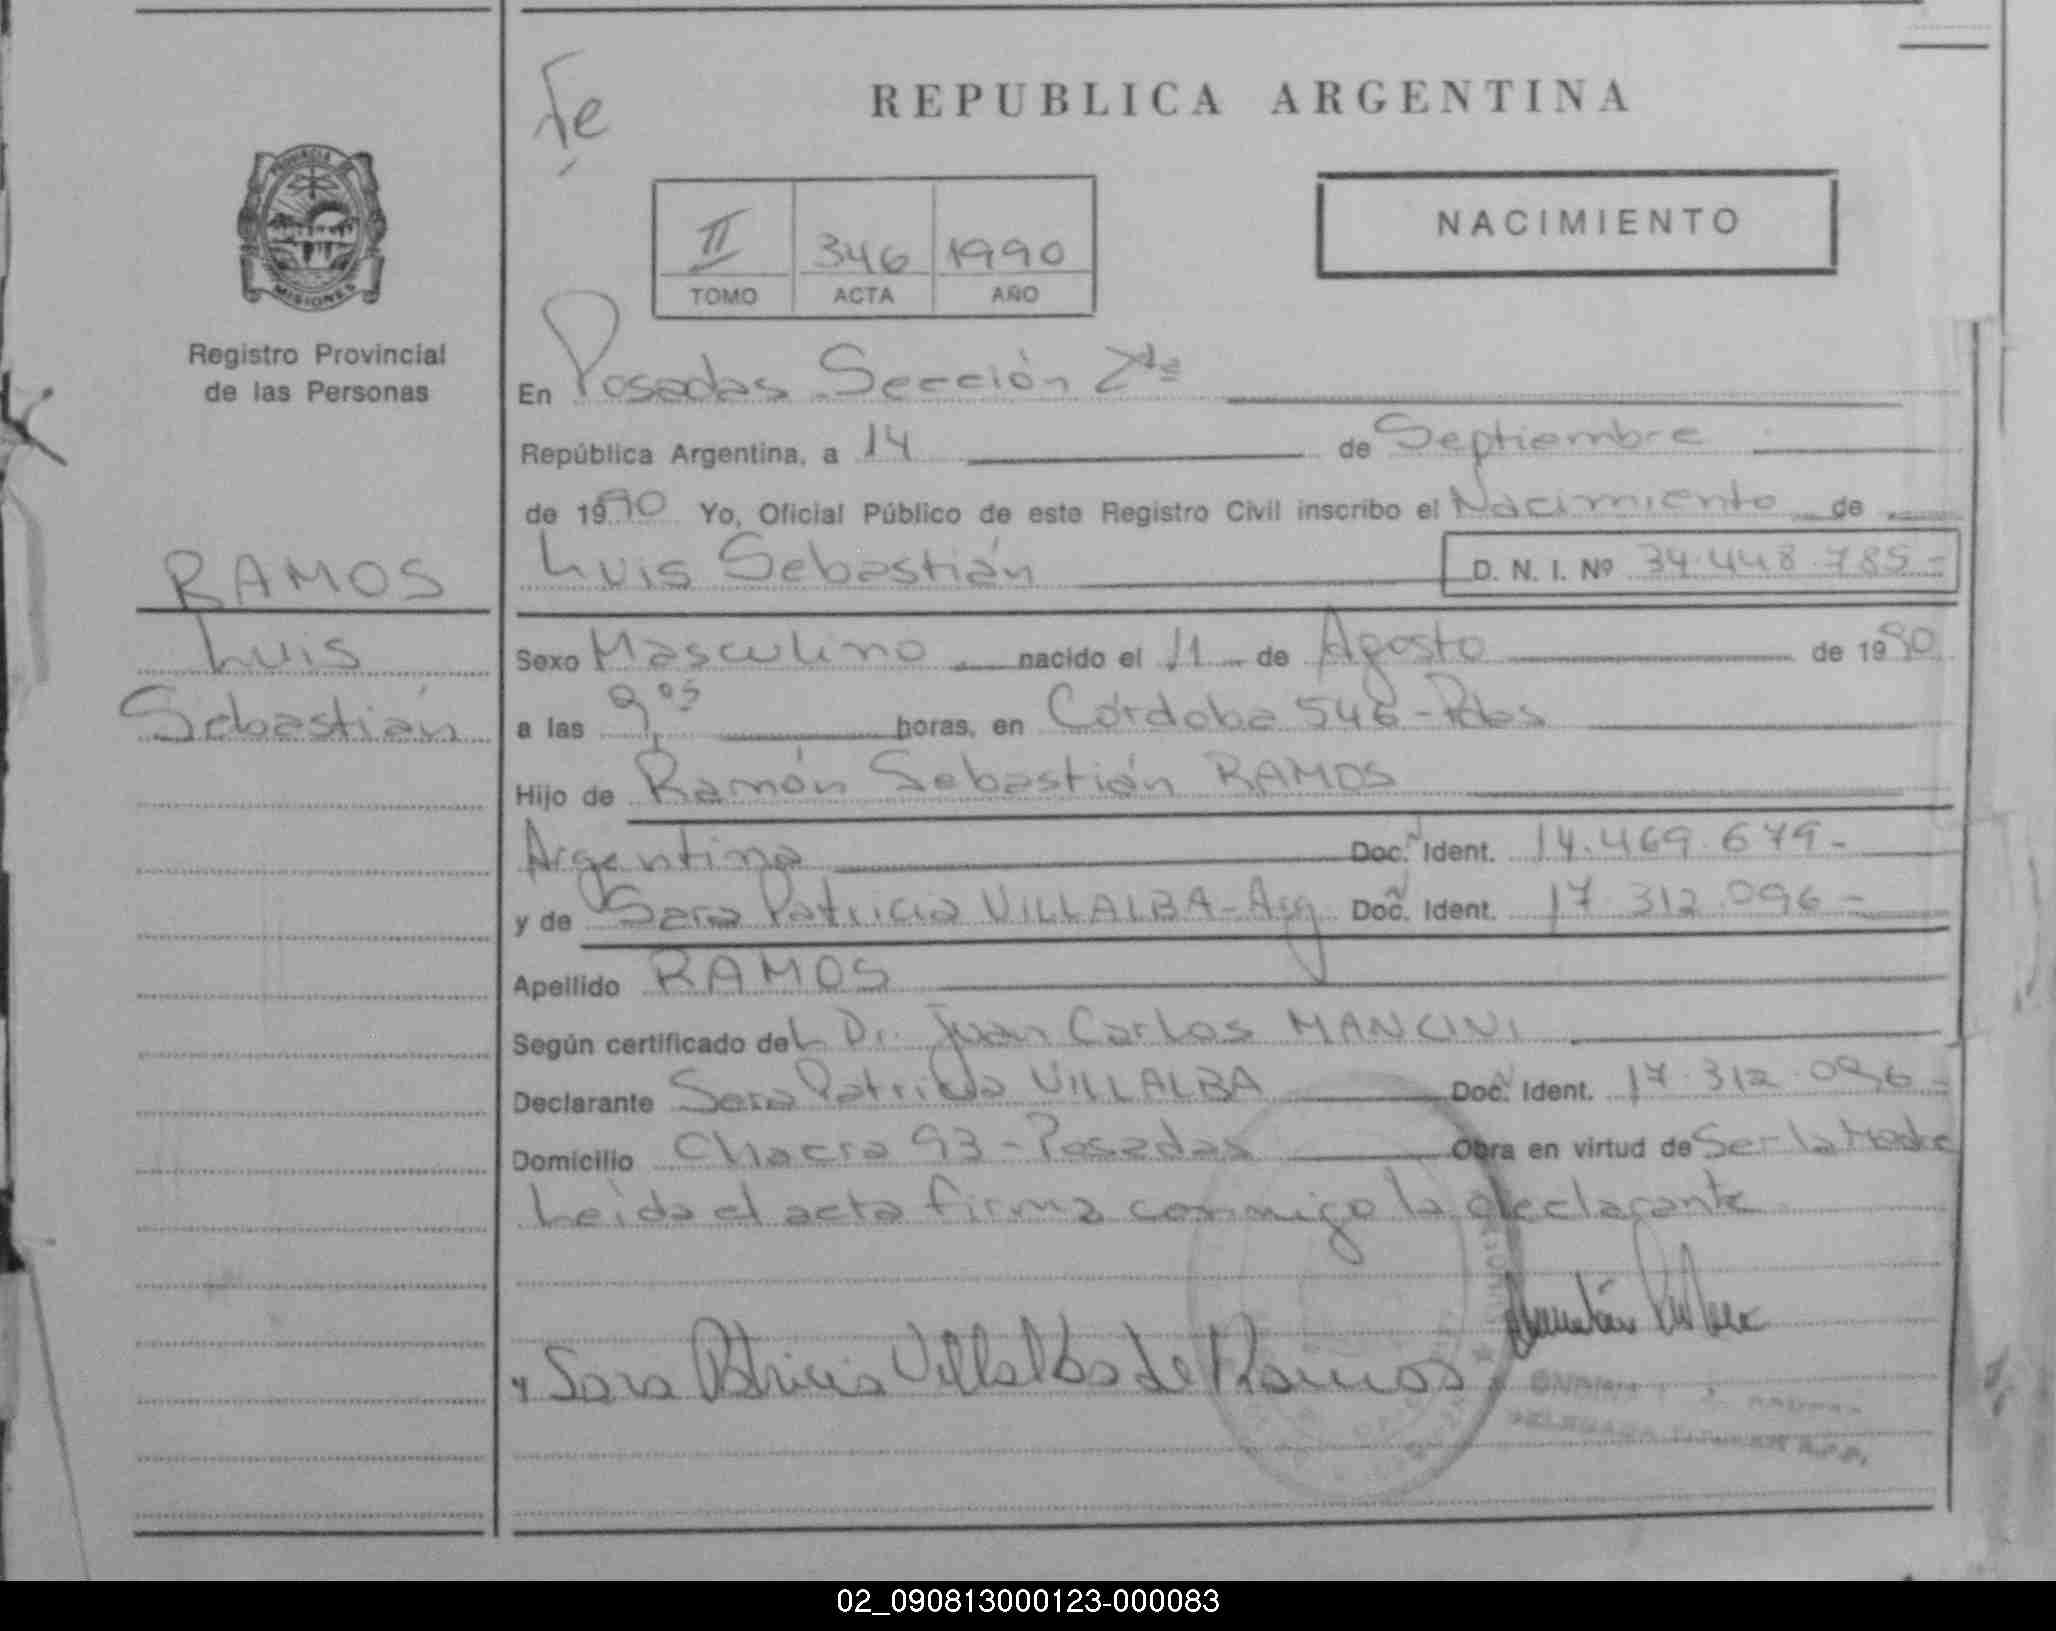 REPUBLICA ARGENTINA
Fe
II 346 1990
TOMO ACTA AÑO
NACIMIENTO
PROVINCIA
MISIONES
Registro Provincial
de las Personas
RAMOS
Luis
Sebastián
En Posadas Sección 2da
República Argentina, a 14 de Septiembre
de 1990 Yo, Oficial Público de este Registro Civil inscribo el Nacimiento de
Luis Sebastián D. N. I. Nº 34.448.785-
Sexo Masculino nacido el 11 de Agosto de 1990
a las 9,05 horas, en Córdoba 546-Pdas
Hijo de Ramón Sebastián RAMOS
Argentino Doc. Ident. 14.469.679-
y de Sara Patricia VILLALBA-Arg Doc. Ident. 17.312.096-
Apellido RAMOS
Según certificado del Dr. Juan Carlos MANCINI
Declarante Sara Patricia VILLALBA Doc. Ident. 17.312.096-
Domicilio Chacra 93-Posadas Obra en virtud de Ser la Madre
Leída el acta firma conmigo la declarante
Sara Patricia Villalba de Ramos
02_090813000123-000083